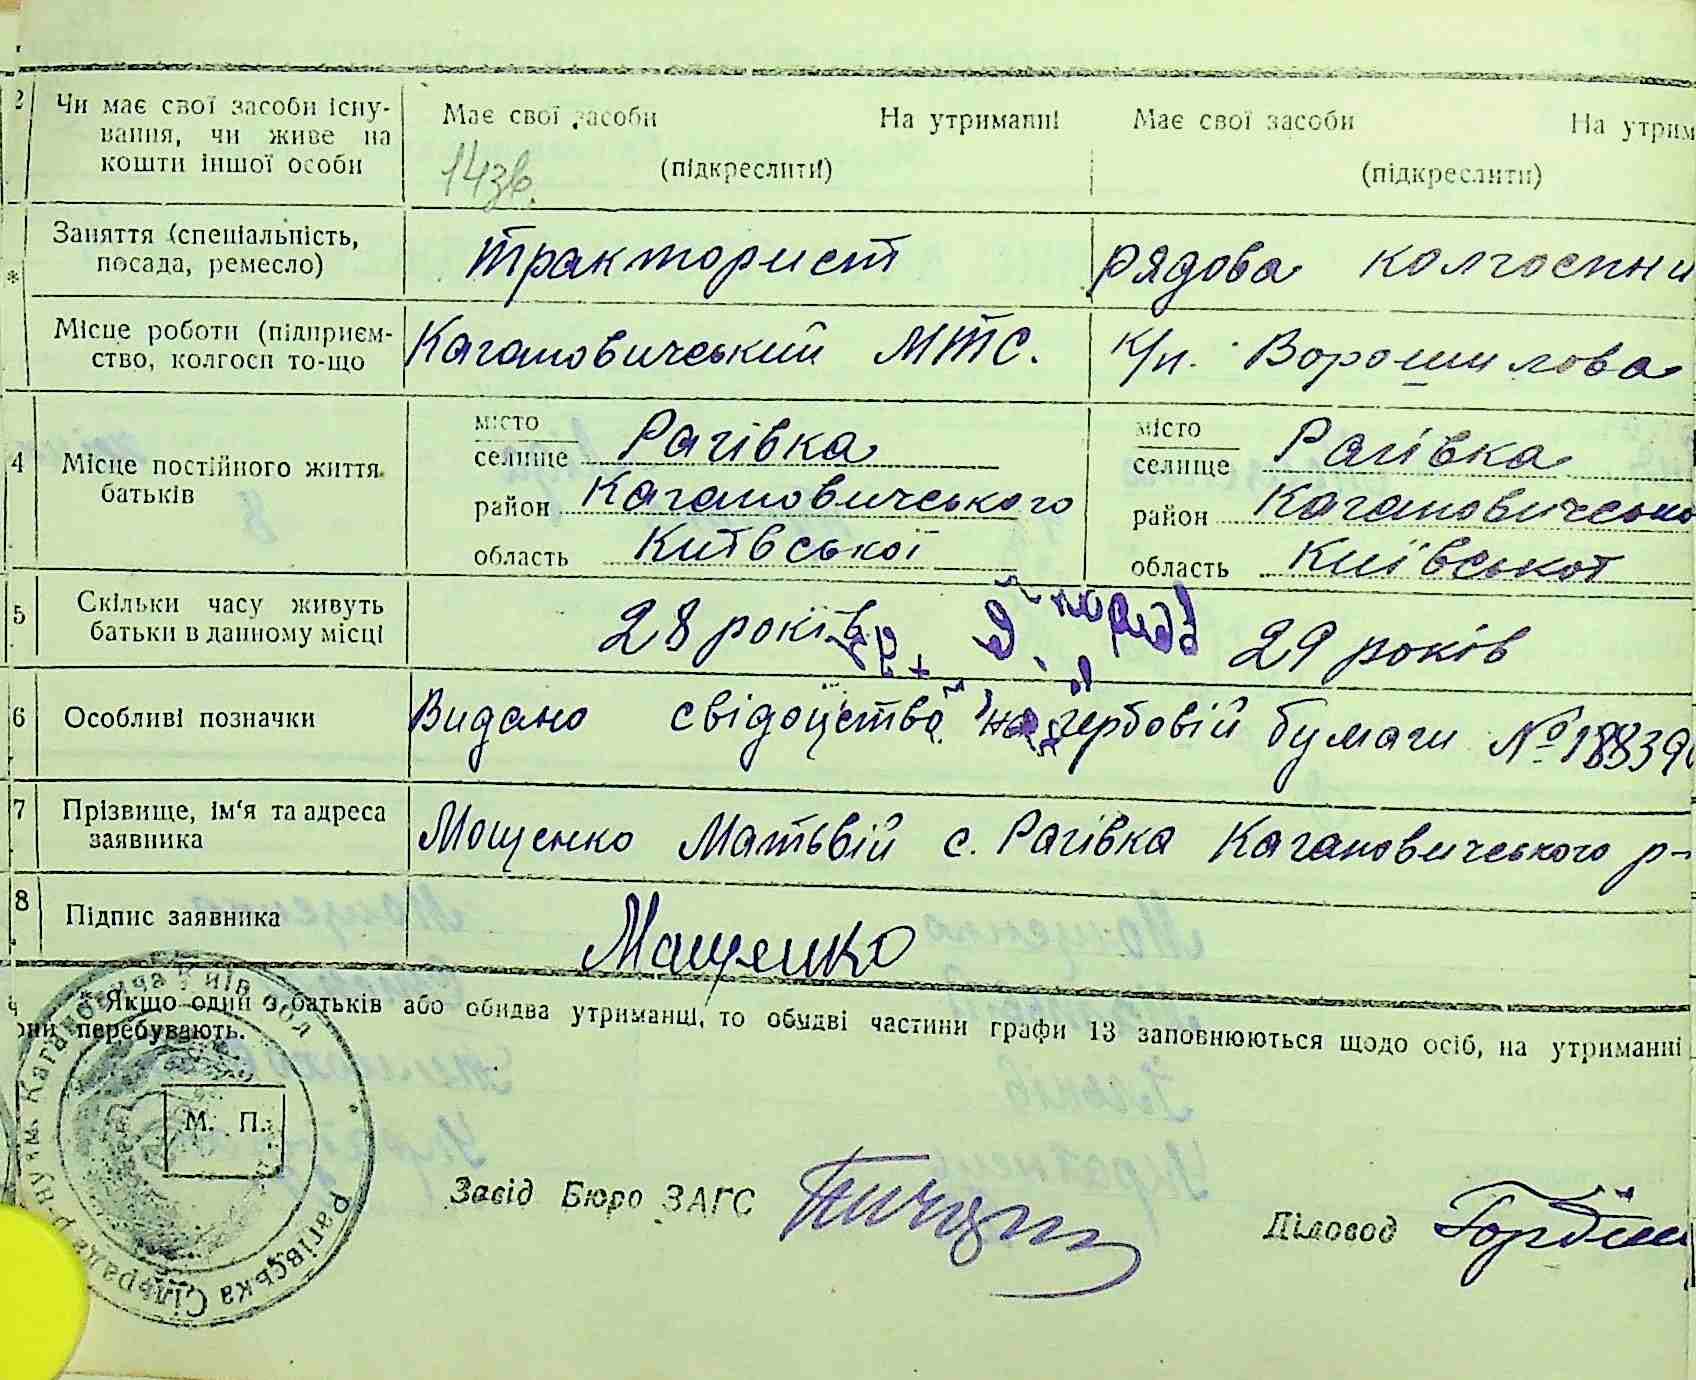 2 Чи має свої засоби існу- Має свої засоби На утриманні Має свої засоби На утрим
вання, чи живе на
кошти іншої особи 14зв. (підкреслити) (підкреслити)
Заняття (спеціальність, тракторист рядова колгоспни
* посада, ремесло)
Місце роботи (підприєм- Кагановичський МТС. к/п. Ворошилова
ство, колгосп то-що
місто місто
4 Місце постійного життя селище Рагівка селище Рагівка
батьків район Кагановичського район Кагановичсько
область Київської область Київської
5 Скільки часу живуть 28 років 29 років
батьки в данному місці
6 Особливі позначки Видано свідоцтво на гербовій бумаги №
7 Прізвище, ім'я та адреса Мощенко Матьвій с. Рагівка Кагановичського р-
заявника
8 Підпис заявника Мащенко
* Якщо один з батьків або обидва утриманці, то обидві частини графи 13 заповнюються щодо осіб, на утриманні
они перебувають.
М. П.
Рагівська Сільрада р-ну ім. Кагановича Київ обл
Завід Бюро ЗАГС
Діловод